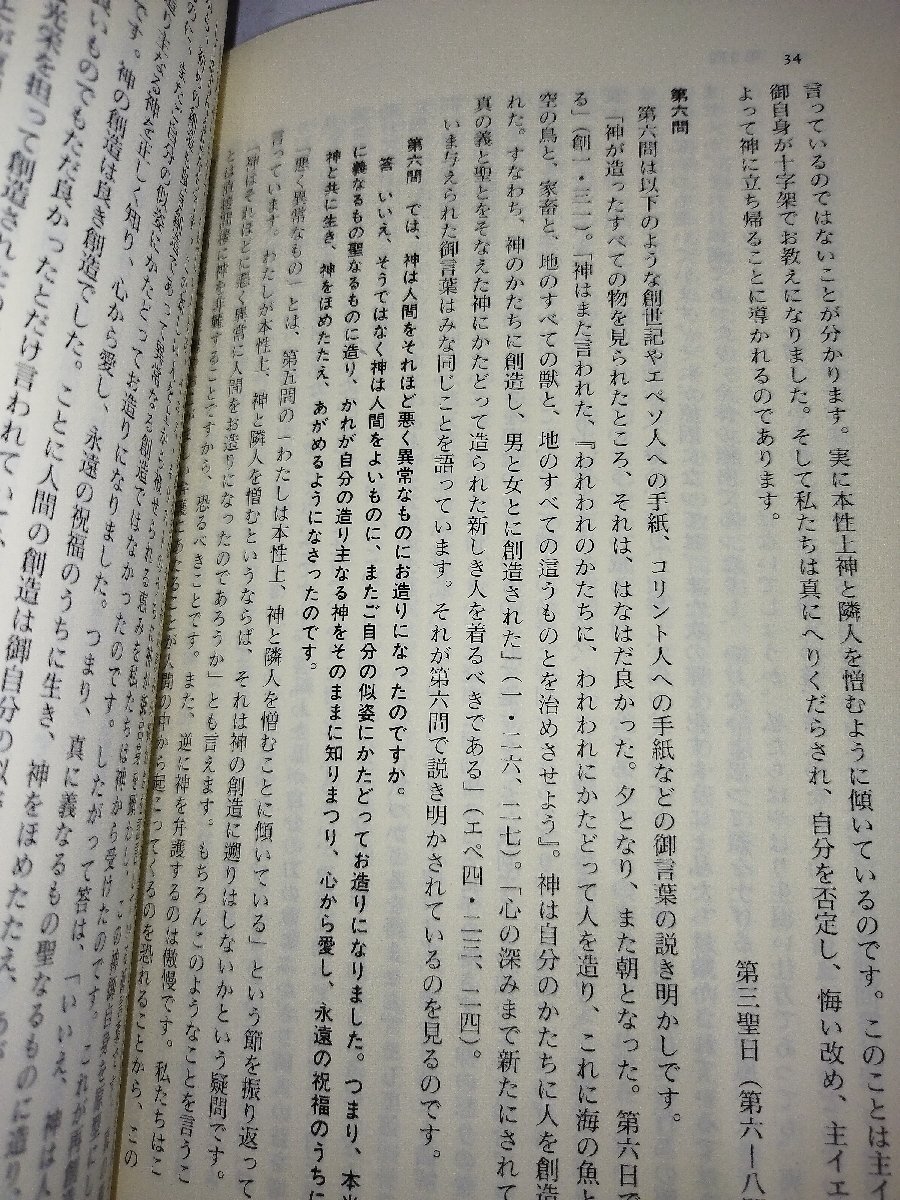 34
言っているのではないことが分かります。実に本性上神と隣人を憎むように傾いているのです。このことは主イエ
御自身が十字架でお教えになりました。そして私たちは真にへりくだらされ、自分を否定し、悔い改め、主イエ
よって神に立ち帰ることに導かれるのであります。
第三聖日(第六―八
第六問
第六問は以下のような創世記やエペソ人への手紙、コリント人への手紙などの御言葉の説き明かしです。
「神が造ったすべての物を見られたところ、それは、はなはだ良かった。夕となり、また朝となった。第六日で
る」(創一・三一)。「神はまた言われた、『われわれのかたちに、われわれにかたどって人を造り、これに海の魚と
空の鳥と、家畜と、地のすべての獣と、地のすべての這うものとを治めさせよう』。神は自分のかたちに人を創造
れた。すなわち、神のかたちに創造し、男と女とに創造された」(一・二六、二七)。「心の深みまで新たにされて
真の義と聖とをそなえた神にかたどって造られた新しき人を着るべきである」(エペ四・二三、二四)。
いま与えられた御言葉はみな同じことを語っています。それが第六問で説き明かされているのを見るのです。
第六問 では、神は人間をそれほど悪く異常なものにお造りになったのですか。
答 いいえ、そうではなく神は人間をよいものに、またご自分の似姿にかたどってお造りになりました。つまり、本当
に義なるもの聖なるものに造り、かれが自分の造り主なる神をそのままに知りまつり、心から愛し、永遠の祝福のうちに
神と共に生き、神をほめたたえ、あがめるようになさったのです。
「悪く異常なもの」とは、第五問の「わたしは本性上、神と隣人を憎むことに傾いている」という節を振り返って
言っています。わたしが本性上、神と隣人を憎むというならば、それは神の創造に遡りはしないかという疑問です。
「神はそれほどに悪く異常に人間をお造りになったのであろうか」とも言えます。もちろんこのようなことを言うこ
恐るべきことです。また、逆に神を弁護するのは傲慢です。私たちはこ
人間の中から起こってくるのを恐れることから、この
神から受けたのです。これが再創
異常なる創造ではなかったのです。したがって答は、「いいえ、神は人
自分の似姿にかたどってお造りになりました。つまり、真に義なるもの聖なるものに造り、
なる神を正しく知り、心から愛し、永遠の祝福のうちに生き、神をほめたたえ、
です。神の創造は良き創造でした。ことに人間の創造は御自分の似
いものでもただ良かったとだけ言われてい
光栄を担って創造された